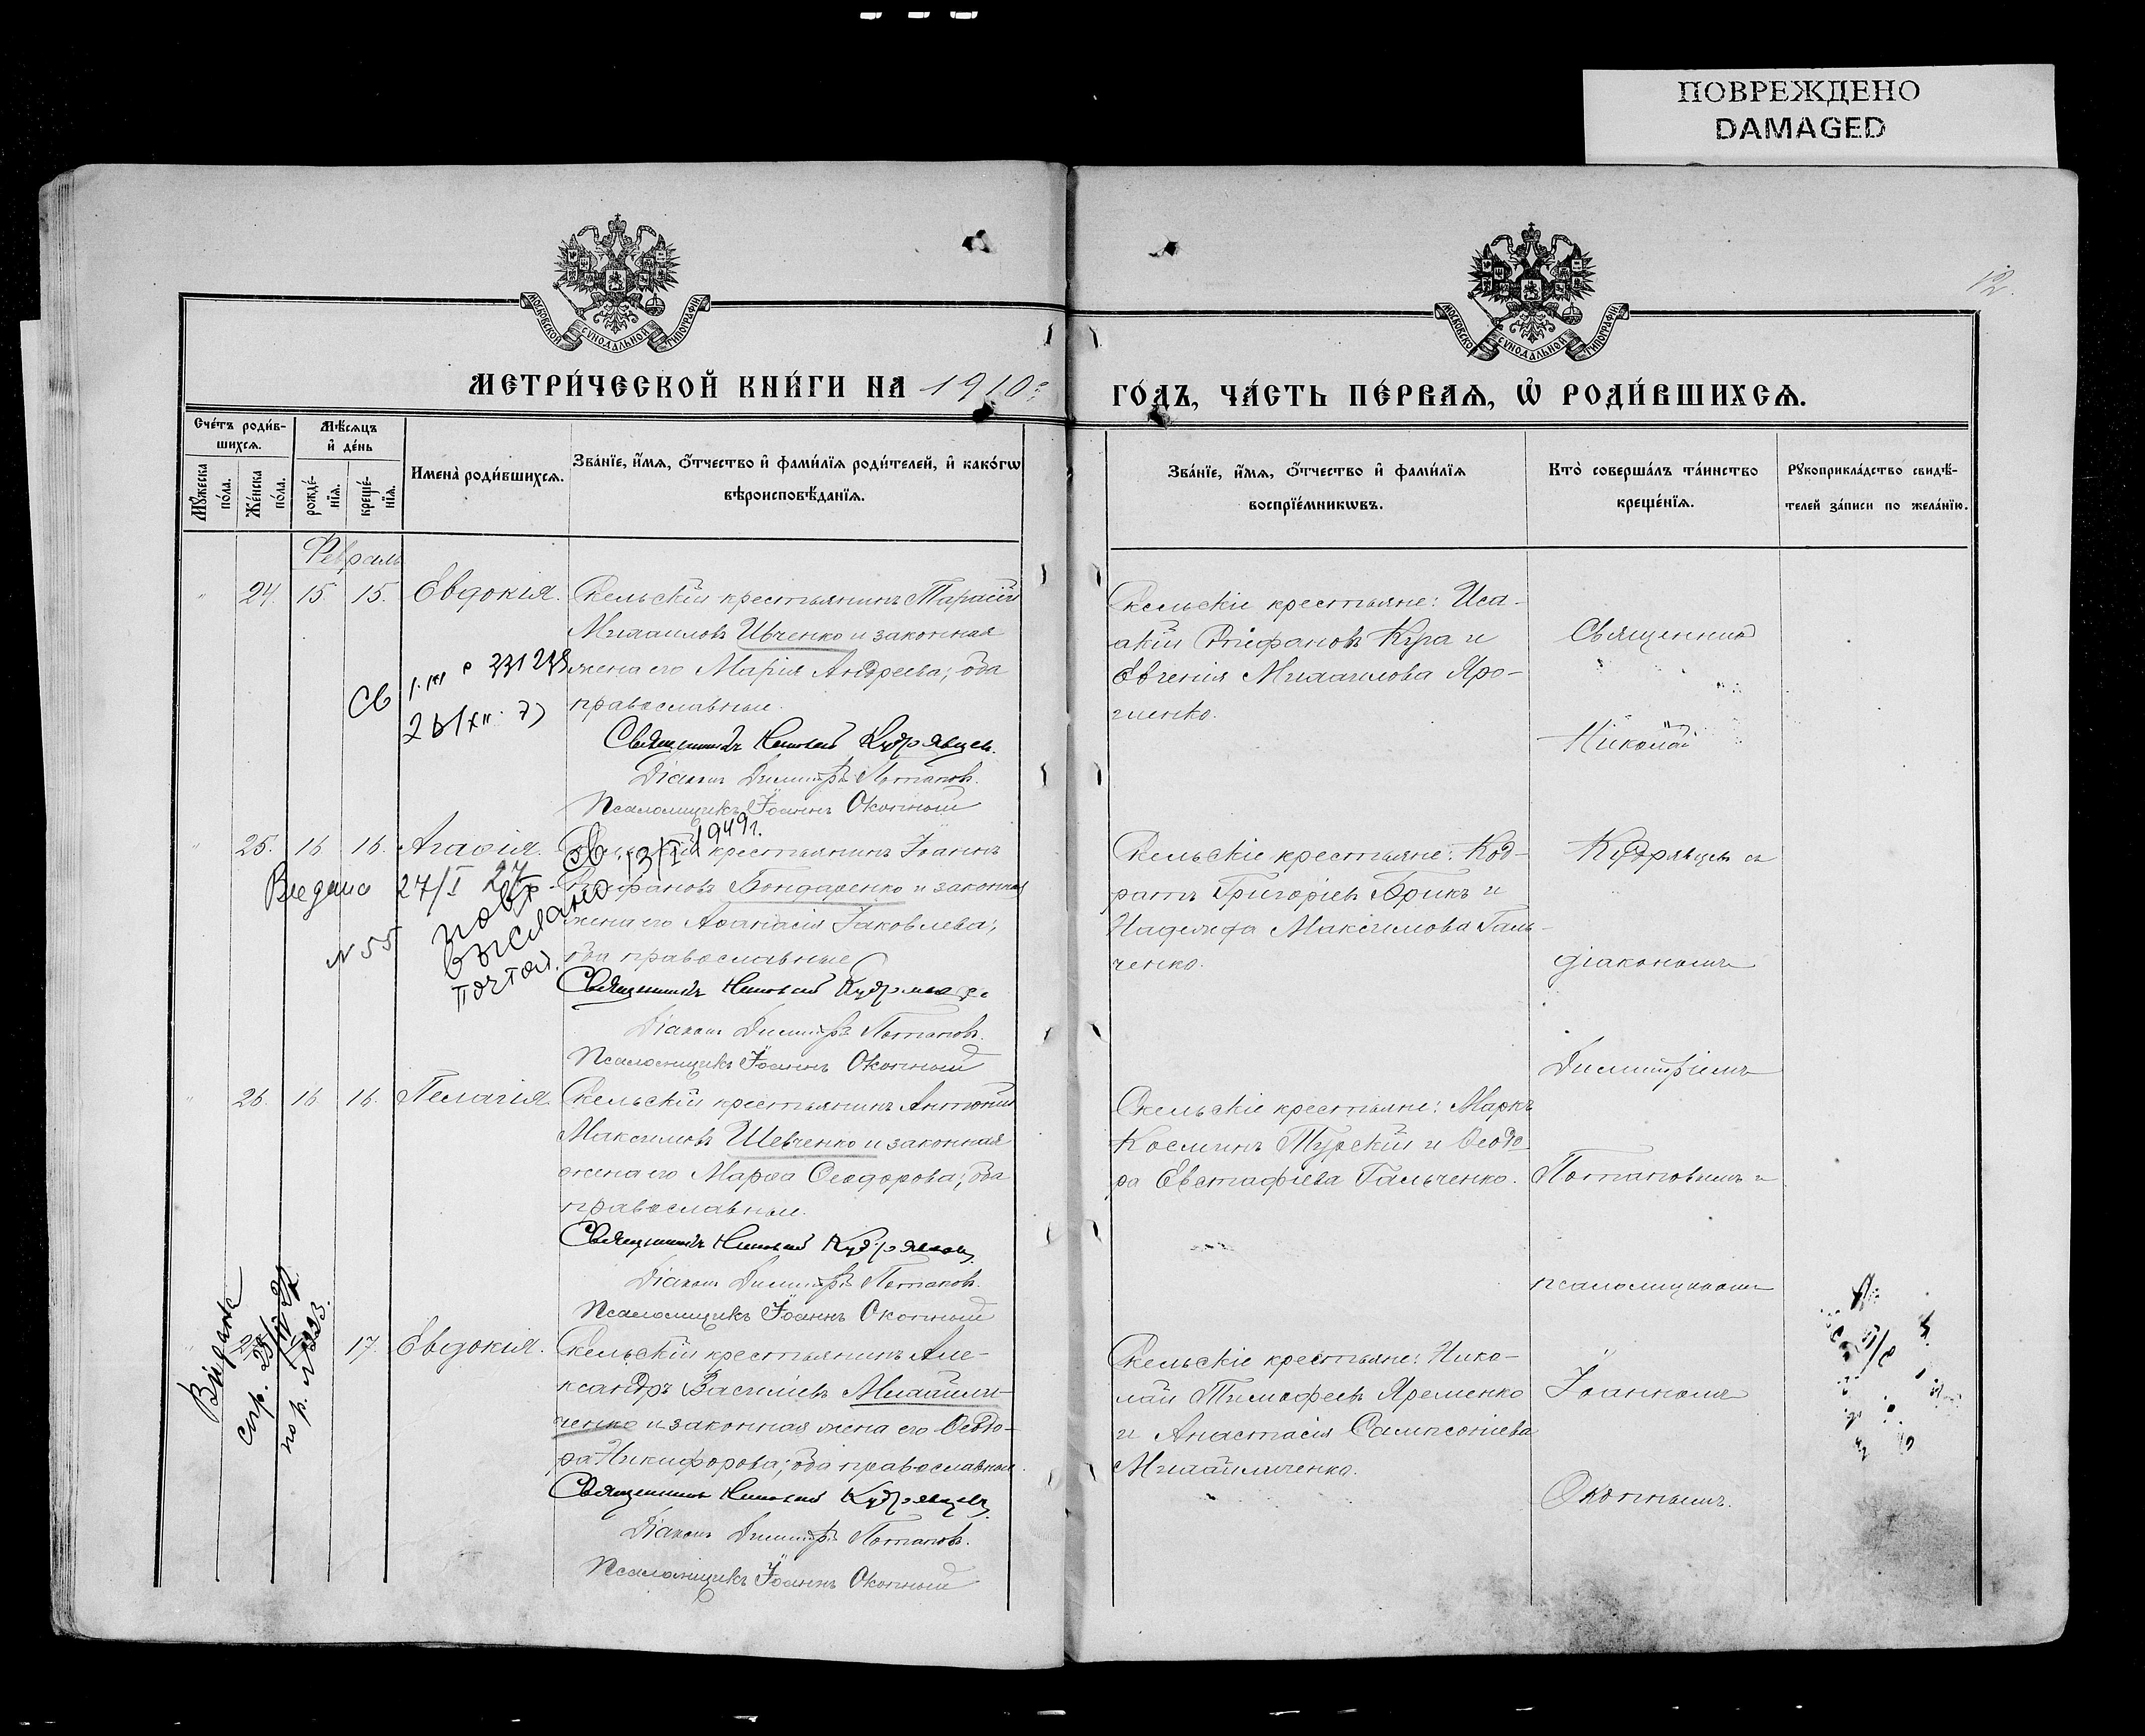 ПОВРЕЖДЕНО
DAMAGED
МОСКОВСКОЙ СѴНОДАЛЬНОЙ ТИПОГРАФІИ
МОСКОВСКОЙ СѴНОДАЛЬНОЙ ТИПОГРАФІИ
12.
МЕТРИ́ЧЕСКОЙ КНИ́ГИ НА 1910
ГО́ДЪ, ЧА́СТЬ ПЕ́РВАѦ, Ѡ҆ РОДИ́ВШИХСѦ.
Сче́тъ роди́в-
шихсѧ.
Мꙋ́жеска по́ла.
Же́нска по́ла.
Мѣ́сѧцъ
и҆ де́нь
рожде́-
нїѧ.
креще́-
нїѧ.
Имена̀ роди́вшихсѧ.
Зва́нїе, и҆́мѧ, ѻ҆́тчество и҆ фами́лїѧ роди́телей, и҆ како́гѡ
вѣроисповѣ́данїѧ.
Зва́нїе, и҆́мѧ, ѻ҆́тчество и҆ фами́лїѧ
воспрїе́мникѡвъ.
Кто̀ соверша́лъ та́инство
креще́нїѧ.
Рꙋкоприкла́дство свидѣ́-
телей за́писи по жела́нїю.
Февраль
24. 15. 15. Евдокія.
Скельскій крестьянинъ Тарасій
Михаиловъ Ивченко и законная
жена его Марія Андреева; оба
православные.
Священникъ Николай Кудрявцев.
Діаконъ Димитрій Потаповъ.
Псаломщикъ Іоаннъ Окопный
Скельскіе крестьяне: Иса-
акій Епифановъ Кура и
Евгенія Михаилова Яро-
шенко.
Священник
Николай
Св
25. 16 16. Агафія.
Скельскій крестьянинъ Іоаннъ
Епифановъ Бондаренко и законная
жена его Афанасія Іаковлева;
оба православные
Священникъ Николай Кудрявцев
Діаконъ Димитрій Потаповъ.
Псаломщикъ Іоаннъ Окопный
Св. 13/I 1949г.
Видано 27/I 27
N 55
повт.
выслано
почтой.
Скельскіе крестьяне: Код-
ратъ Григоріевъ Брикъ и
Надежда Максимова Галь-
ченко.
Кудрявцев съ
діакономъ
Димитріемъ
26. 16 16. Пелагія
Скельскій крестьянинъ Антоній
Максимовъ Шевченко и законная
жена его Марфа Феодорова; оба
православные.
Священникъ Николай Кудрявцев
Діаконъ Димитрій Потаповъ.
Псаломщикъ Іоаннъ Окопный
Скельскіе крестьяне: Маркъ
Косминъ Турскій и Феодо-
ра Евстафіева Гальченко.
Потаповымъ и
псаломщикомъ
17. Евдокія.
Скельскій крестьянинъ Але-
ксандръ Василіевъ Михайли-
ченко и законная жена его Феодо-
ра Никифорова; оба православные.
Священникъ Николай Кудрявцев
Діаконъ Димитрій Потаповъ.
Псаломщикъ Іоаннъ Окопный
Скельскіе крестьяне: Нико-
лай Тимофеевъ Яременко
и Анастасія Сампсоніева
Михайличенко.
Іоанномъ
Окопнымъ.
по р. N 223.